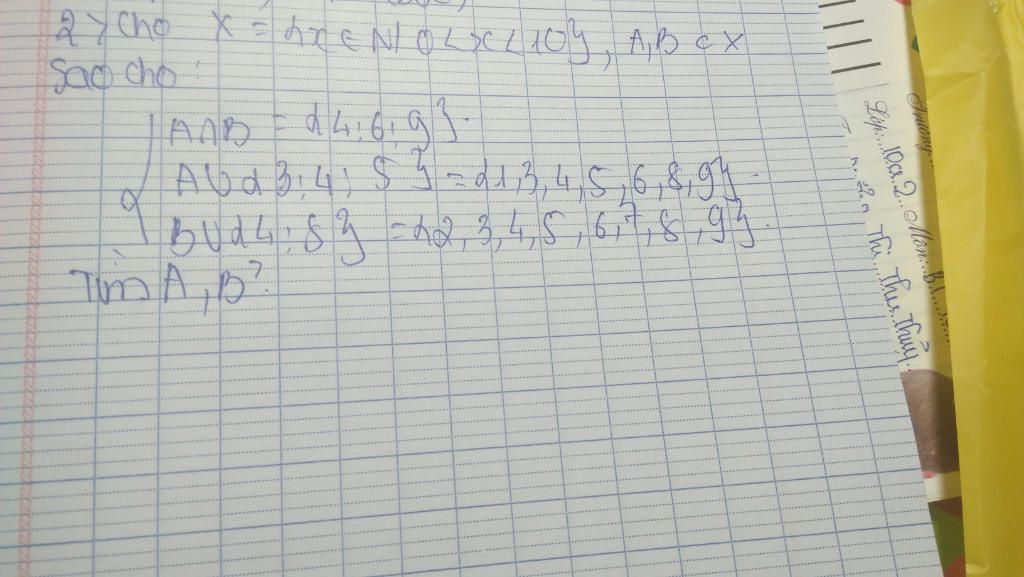 2> Cho X = {x ∈ N / 0 < x < 10}, A, B ⊂ X
Sao cho :
A∩B = {4; 6; 9}.
A∪{3; 4; 5} = {1, 3, 4, 5, 6, 8, 9}.
B∪{4; 8} = {2, 3, 4, 5, 6, 7, 8, 9}.
Tìm A, B?
Trường
Lớp...10a2...Môn
Thị Thu Thủy